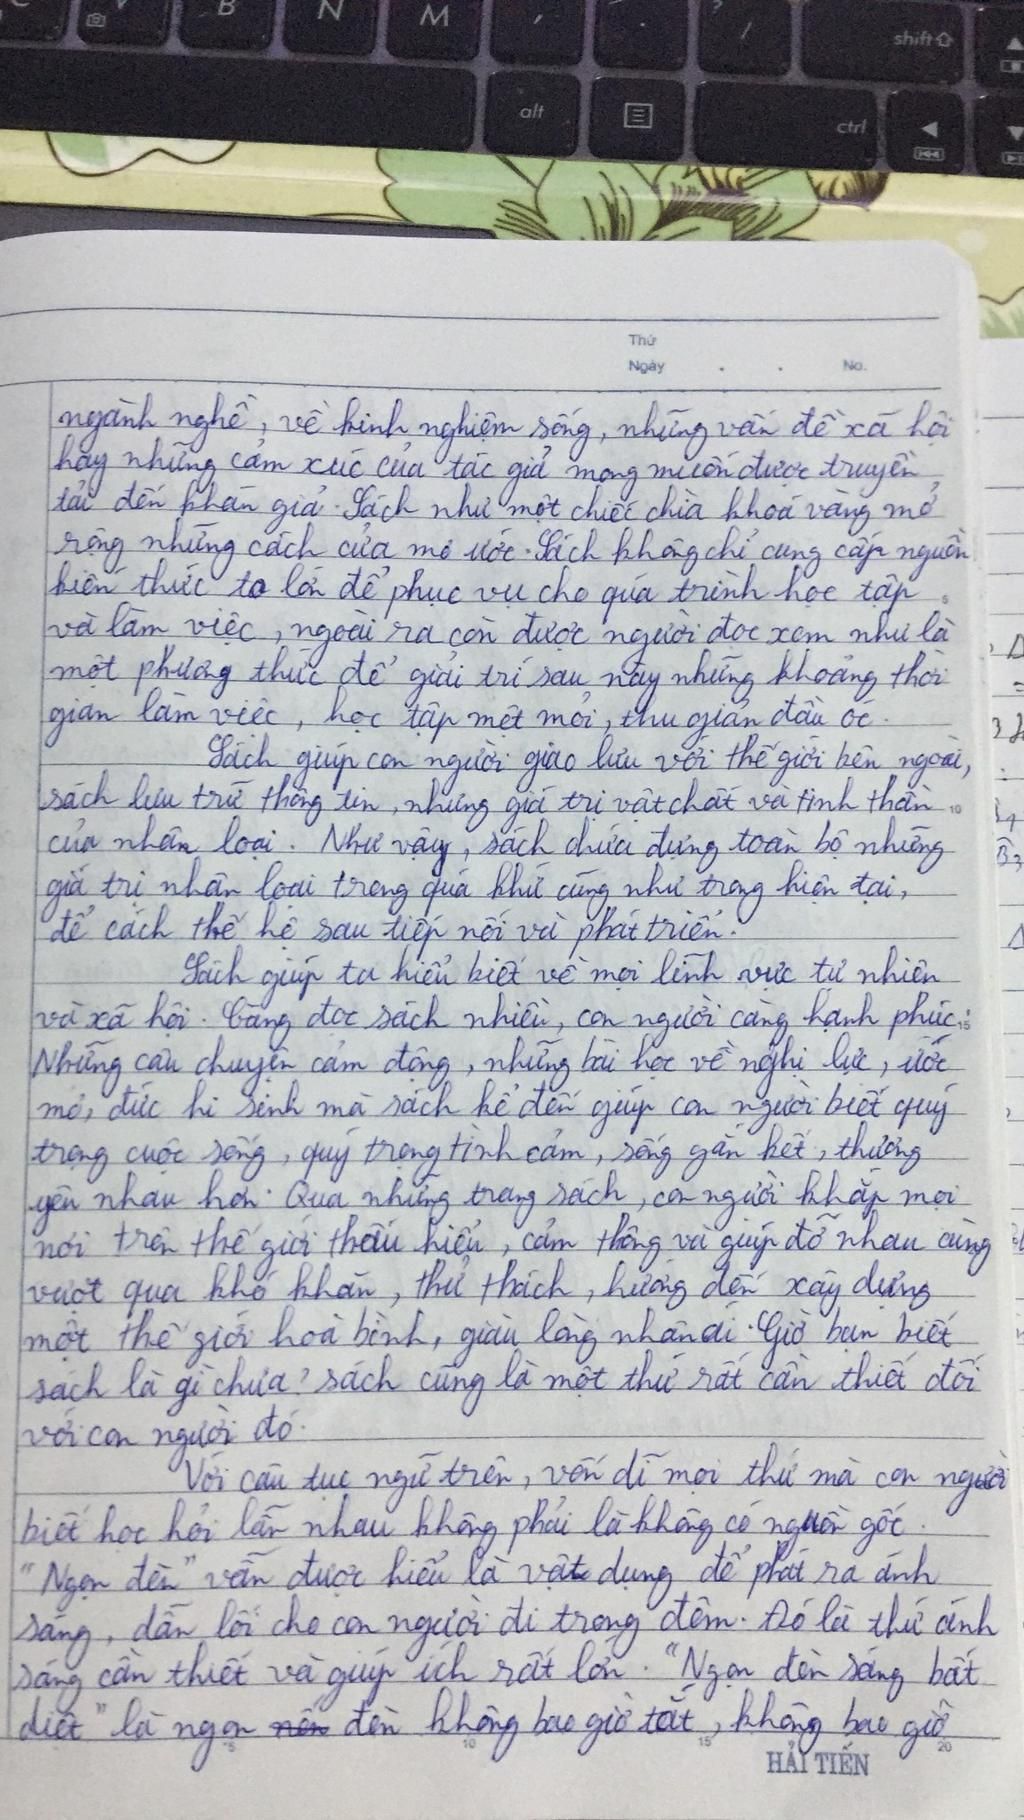 B N M , . /
shift
alt ctrl
Thứ
Ngày . . No.
ngành nghề, về kinh nghiệm sống, những vấn đề xã hội
hay những cảm xúc của tác giả mong muốn được truyền
tải đến khán giả. Sách như một chiếc chìa khoá vàng mở
rộng những cách cửa mơ ước. Sách không chỉ cung cấp nguồn
kiến thức to lớn để phục vụ cho quá trình học tập
và làm việc, ngoài ra còn được người đọc xem như là
một phương thức để giải trí sau này những khoảng thời
gian làm việc, học tập mệt mỏi, thu giãn đầu óc.
Sách giúp con người giao lưu với thế giới bên ngoài,
sách lưu trữ thông tin, những giá trị vật chất và tinh thần
của nhân loại. Như vậy, sách chứa đựng toàn bộ những
giá trị nhân loại trong quá khứ cũng như trong hiện tại,
để cách thế hệ sau tiếp nối và phát triển.
Sách giúp ta hiểu biết về mọi lĩnh vực tự nhiên
và xã hội. Càng đọc sách nhiều, con người càng hạnh phúc.
Những câu chuyện cảm động, những bài học về nghị lực, ước
mơ, đức hi sinh mà sách kể đến giúp con người biết quý
trọng cuộc sống, quý trọng tình cảm, sống gắn kết, thương
yêu nhau hơn. Qua những trang sách, con người khắp mọi
nơi trên thế giới thấu hiểu, cảm thông và giúp đỡ nhau cùng
vượt qua khó khăn, thử thách, hướng đến xây dựng
một thế giới hoà bình, giàu lòng nhân ái. Giờ bạn biết
sách là gì chưa? sách cũng là một thứ rất cần thiết đối
với con người đó.
Với câu tục ngữ trên, vốn dĩ mọi thứ mà con người
biết học hỏi lẫn nhau không phải là không có nguồn gốc.
"Ngọn đèn" vẫn được hiểu là vật dụng để phát ra ánh
sáng, dẫn lối cho con người đi trong đêm. Đó là thứ ánh
sáng cần thiết và giúp ích rất lớn. "Ngọn đèn sáng bất
diệt" là ngọn nến đèn không bao giờ tắt, không bao giờ
5 10 15 20
HẢI TIẾN